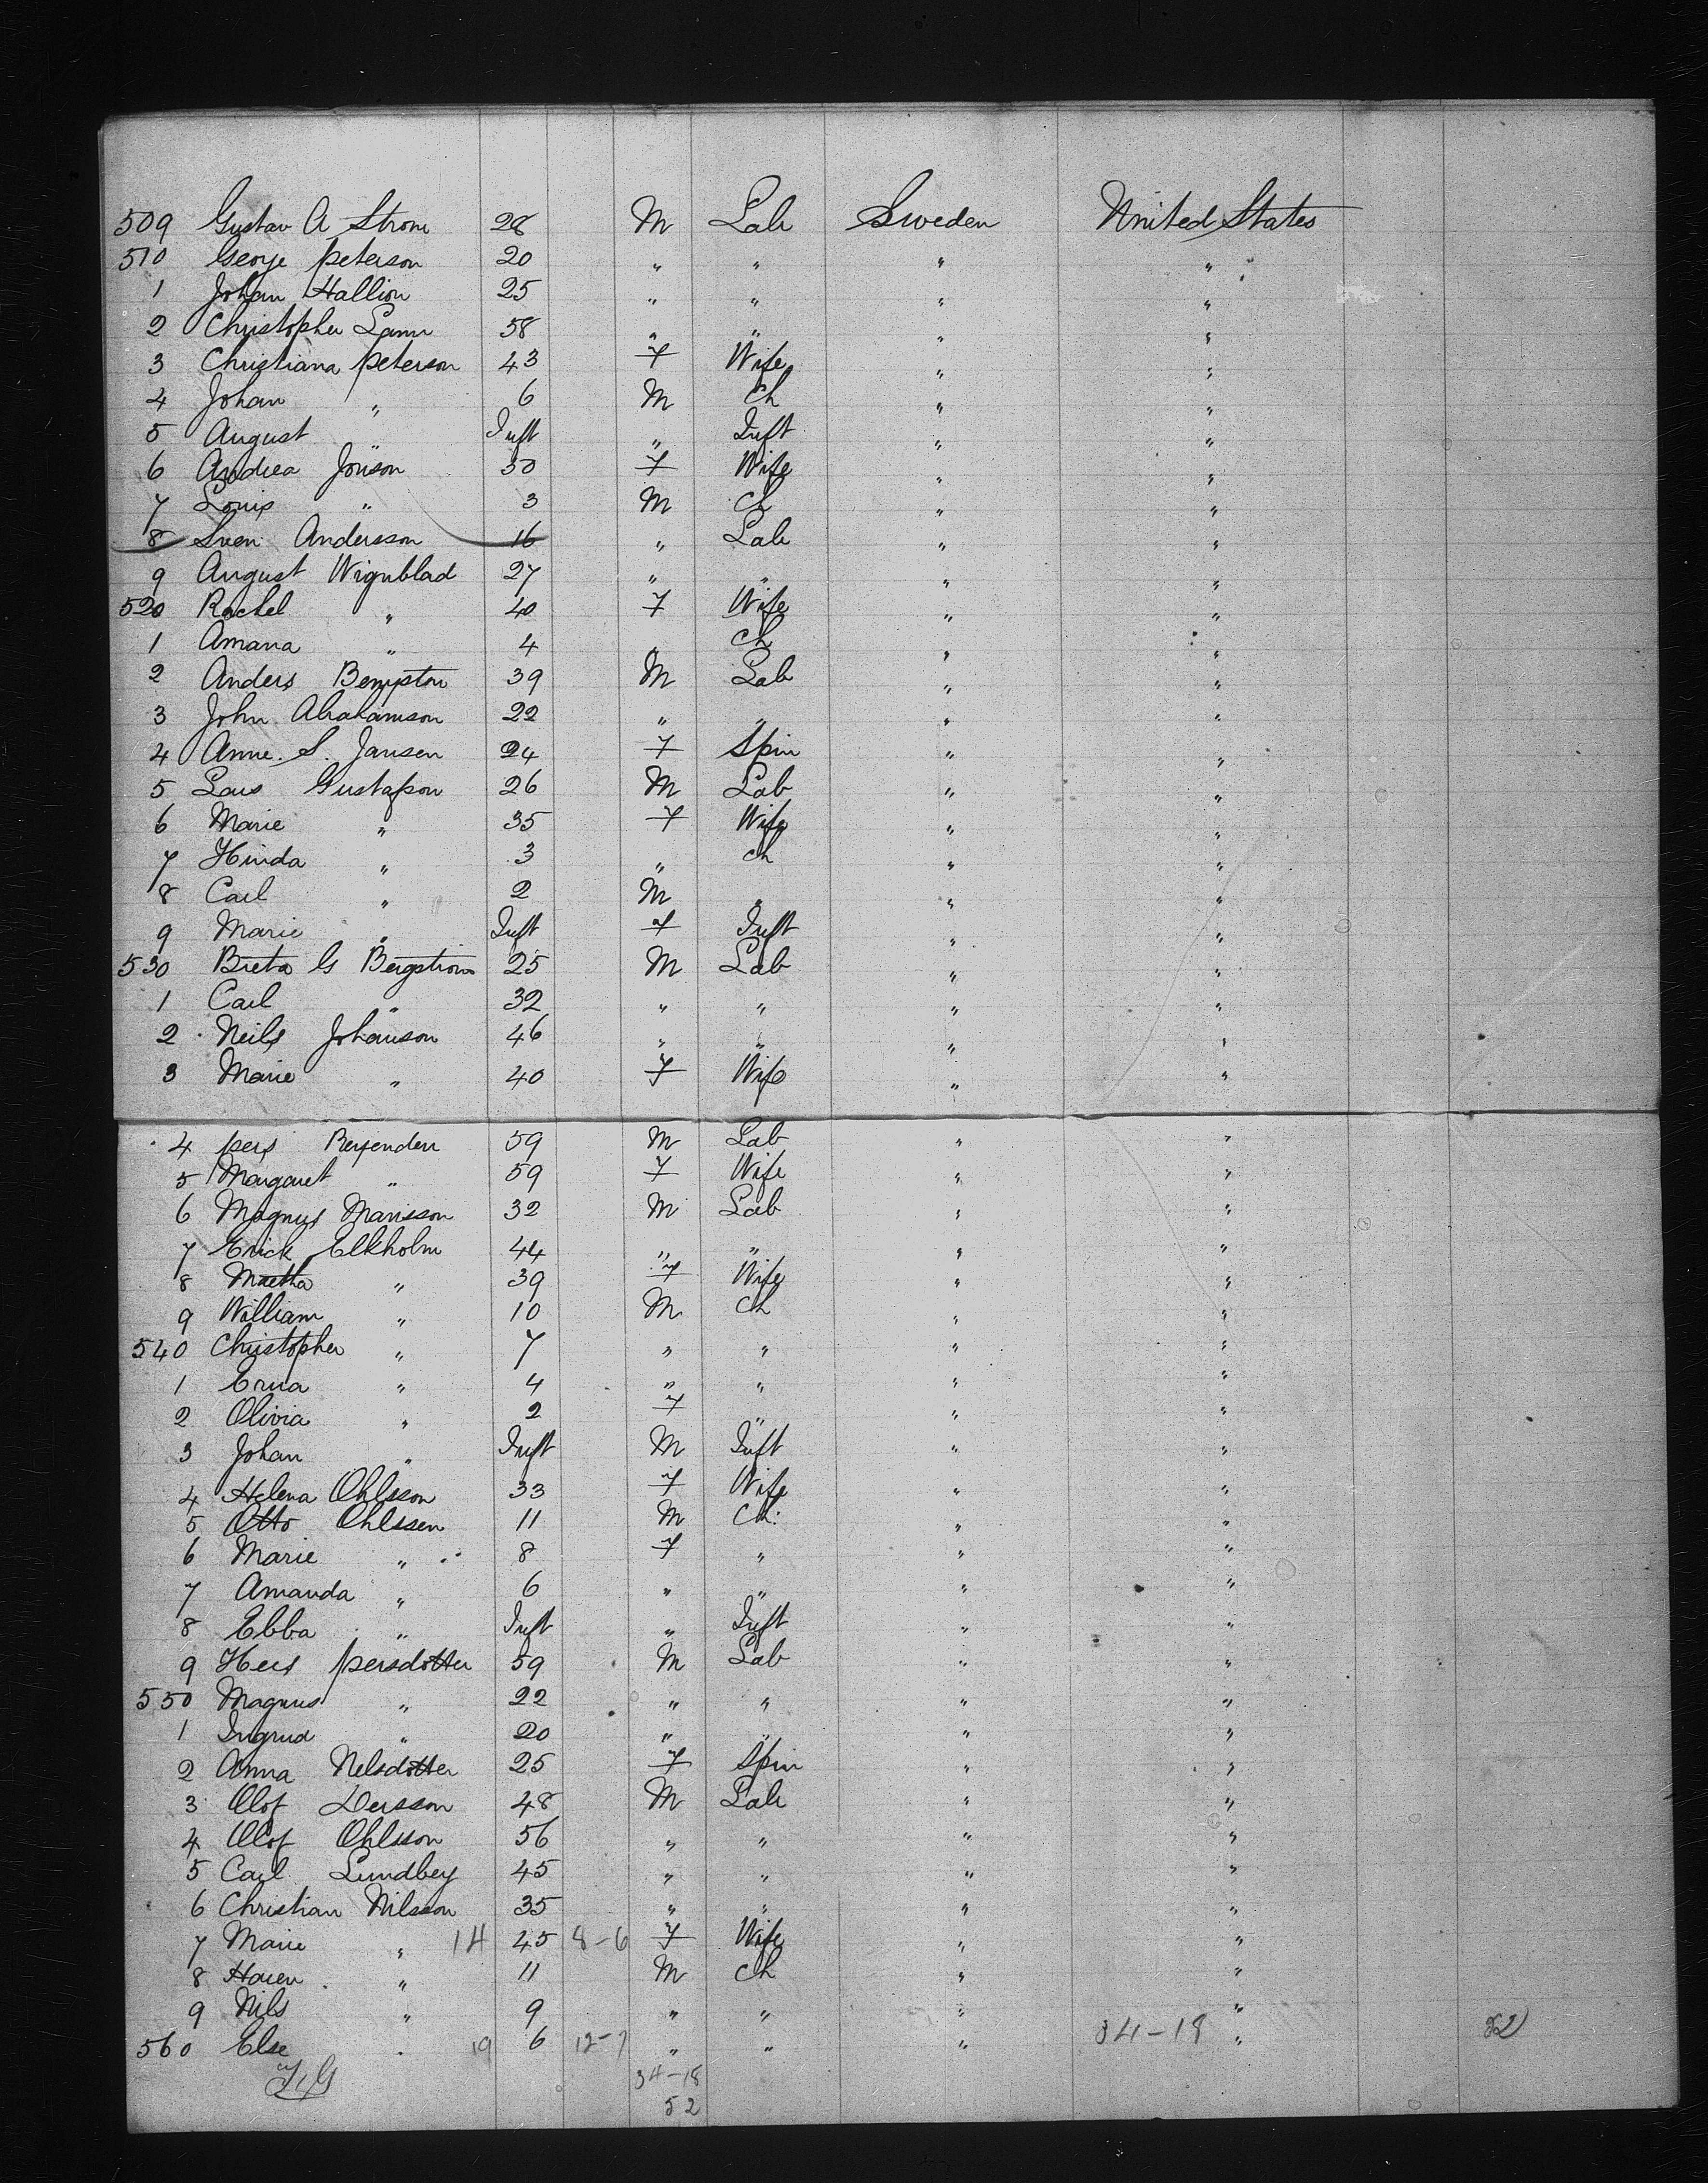 509 Gustav A Strom 28 M Lab Sweden United States
510 George Peterson 20 " " " "
1 Johan Hallion 25 " " " "
2 Christopher Lamm 58 " " " "
3 Christiana Peterson 43 F Wife " "
4 Johan " 6 M Ch " "
5 August " Inft " Inft " "
6 Andrea Jonson 30 F Wife " "
7 Louis " 3 M Ch " "
8 Sven Andersson 16 " Lab " "
9 August Wignblad 27 " " " "
520 Rachel " 40 F Wife " "
1 Amana " 4 " Ch " "
2 Anders Bempton 39 M Lab " "
3 John Abrahamson 22 " " " "
4 Anne. S. Jansen 24 F Spin " "
5 Lars Gustafson 26 M Lab " "
6 Marie " 35 F Wife " "
7 Hinda " 3 " Ch " "
8 Carl " 2 M " " "
9 Marie " Inft F Inft " "
530 Breta G Bergstrom 25 M Lab " "
1 Carl " 32 " " " "
2 Neils Johanson 46 " " " "
3 Marie " 40 F Wife " "
4 Pers 59 M Lab " "
5 Margaret " 59 F Wife " "
6 Magnus Mansson 32 M Lab " "
7 Erick Elkholm 44 " " " "
8 Martha " 39 F Wife " "
9 William " 10 M Ch " "
540 Christopher " 7 " " " "
1 Erna " 4 " " " "
2 Olivia " 2 F " " "
3 Johan " Inft M Inft " "
4 Helena Ohlsson 33 F Wife " "
5 Otto Ohlssen 11 M Ch. " "
6 Marie " 8 F " " "
7 Amanda " 6 " " " "
8 Ebba " Inft " Inft " "
9 Hers Persdotter 59 M Lab " "
550 Magnus " 22 " " " "
1 Ingrud " 20 " " " "
2 Anna Nelsdotter 25 F Spin " "
3 Olof Dersson 48 M Lab " "
4 Olof Ohlsson 56 " " " "
5 Carl Lundbey 45 " " " "
6 Christian Nilsson 35 " " " "
7 Marie " 14 45 8-6 F Wife " "
8 Haren " 11 M Ch " "
9 Nils " 9 " " " "
560 Else " 19 6 12-7 " " " 34-18 " 52
34-18
52